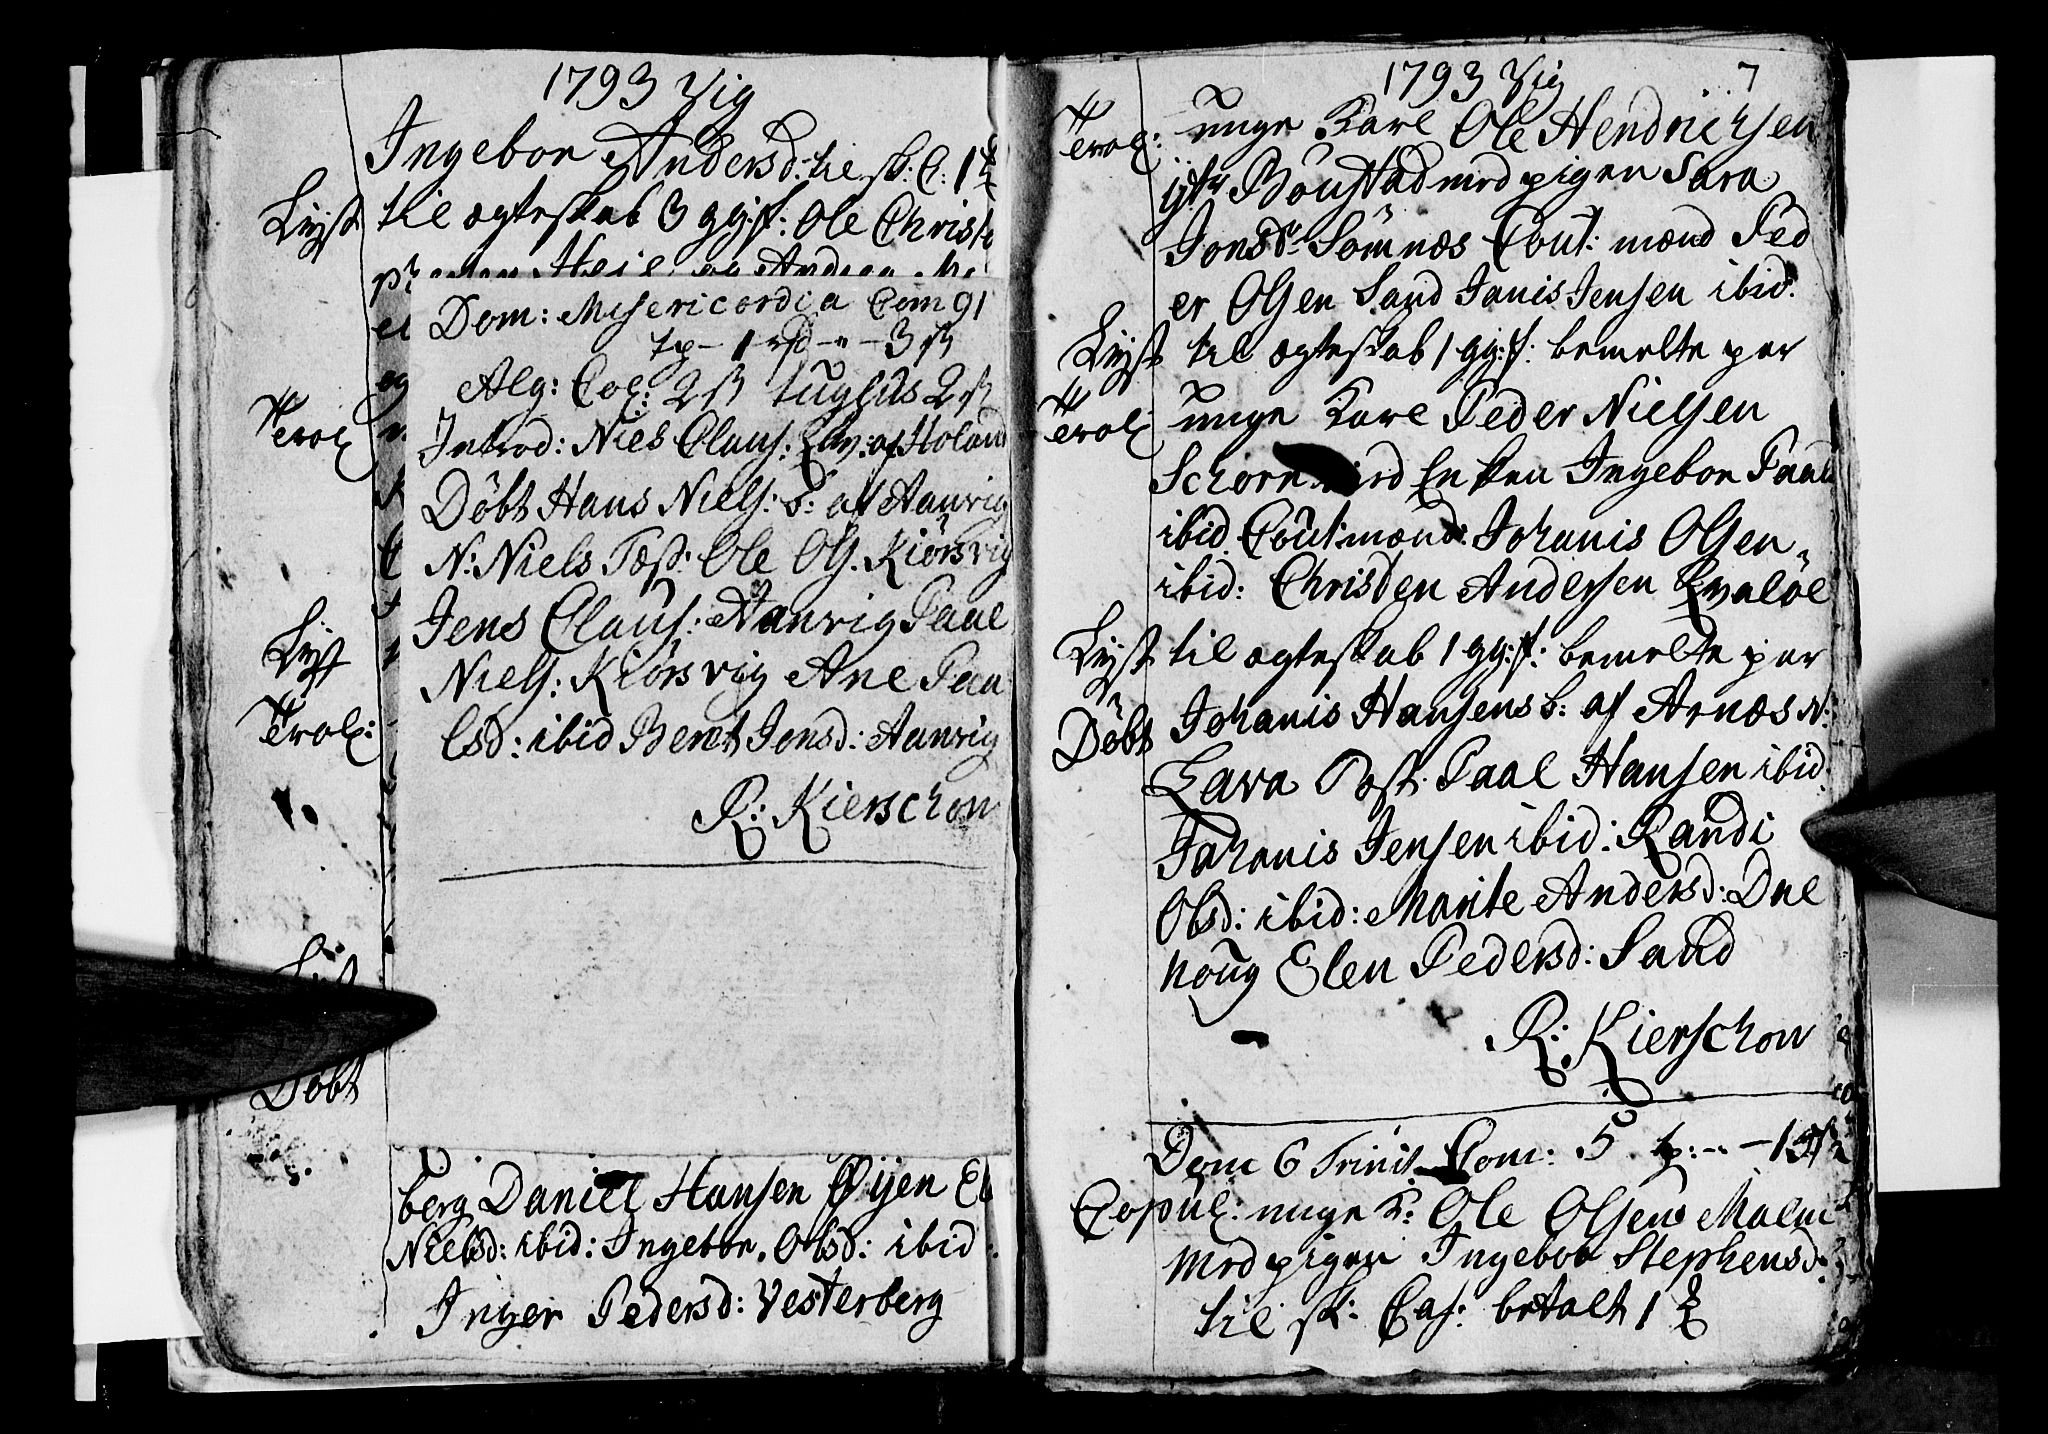 1793 Vig
Ingebor Andersd: til sk: C: 1
Lyst til ægteskab 3 gg: f: Ole Christo
Heie og Anders
Dom: Misericordia Com 91
tp - 1 rd - " - 3 ß
Alg: Col: 2 ß tughus 2 ß
Trol:
Introd: Niels Claus: Ew: af Holand
Döbt Hans Niels: b: af Aanvig
N: Niels Test: Ole Ols. Kiörsvig
Jens Claus: Aanvig Paal
Lyst
Niels: Kiörsvig Ane Paa
Trol:
lsd: ibid Beret Jonsd: Aanvig
R: Kierschow
Döbt
berg Daniel Hansen Öijen El
Nielsd: ibid: Ingebor Olsd: ibid
Inger Pedersd: Vesterberg
1793 Vig 7
Trol: unge Karl Ole Hendrichsen
Boustad med pigen Sara
Jonsd: Sömnæs Caut: mænd Ped
er Olsen Sand Janis Jensen ibid:
Lyst til ægteskab 1 gg: f: bemelte par
Trol: unge Karl Peder Nielsen
Enken Ingebor Paal
ibid Cautmænd: Johanis Olsen
ibid: Christen Andersen Qvalöe
Lyst til ægteskab 1 gg: f: bemelte par
Döbt Johanis Hansens b: af Arnæs N:
Lava Test: Paal Hansen ibid:
Johanis Jensen ibid: Randi
Olsd: ibid: Marite Andersd: Dal
houg Elen Pedersd: Sand
R: Kierschow
Dom 6 Trinit Com: 5 tp: --
Copul: unge K: Ole Olsen Malm
med pigen Ingebor Stephensd:
til sk: Cas: betalt 1